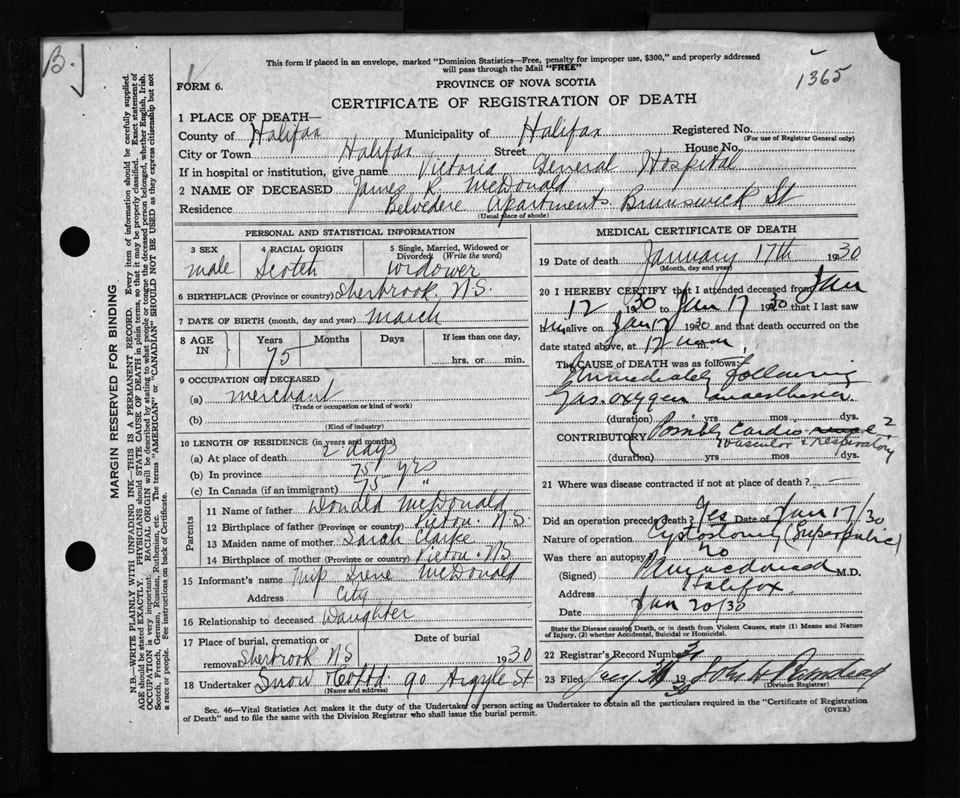 B.
1365
This form if placed in an envelope, marked "Dominion Statistics—Free, penalty for improper use, $300," and properly addressed
will pass through the Mail "FREE"
FORM 6.
PROVINCE OF NOVA SCOTIA
CERTIFICATE OF REGISTRATION OF DEATH
MARGIN RESERVED FOR BINDING
N.B.—WRITE PLAINLY WITH UNFADING INK—THIS IS A PERMANENT RECORD. Every item of information should be carefully supplied.
AGE should be stated EXACTLY. PHYSICIANS should STATE CAUSE OF DEATH in plain terms, so that it may be properly classified. Exact statement of
OCCUPATION is very important. RACIAL ORIGIN will be described by stating to what people or tongue the deceased person belonged, whether English, Irish,
Scotch, French, German, Russian, Ruthenian, etc. The terms "AMERICAN" or "CANADIAN" SHOULD NOT BE USED as they express citizenship but not
a race or people. See instructions on back of Certificate.
1 PLACE OF DEATH—
County of Halifax Municipality of Halifax Registered No.
(For use of Registrar General only)
City or Town Halifax Street House No.
If in hospital or institution, give name Victoria General Hospital
2 NAME OF DECEASED James R. McDonald
Residence Belvedere Apartments Brunswick St
(Usual place of abode)
PERSONAL AND STATISTICAL INFORMATION
3 SEX male
4 RACIAL ORIGIN Scotch
5 Single, Married, Widowed or Divorced (Write the word) widower
6 BIRTHPLACE (Province or country) Sherbrook, N.S.
7 DATE OF BIRTH (month, day and year) March
8 AGE IN Years 75 Months Days If less than one day, hrs. or min.
9 OCCUPATION OF DECEASED
(a) merchant
(Trade or occupation or kind of work)
(b)
(Kind of industry)
10 LENGTH OF RESIDENCE (in years and months)
(a) At place of death 2 days
(b) In province 75 yrs
(c) In Canada (if an immigrant) 75 "
Parents
11 Name of father Donald McDonald
12 Birthplace of father (Province or country) Pictou. N.S.
13 Maiden name of mother Sarah Clarke
14 Birthplace of mother (Province or country) Pictou. NS
15 Informant's name Irene McDonald
Address City
16 Relationship to deceased Daughter
17 Place of burial, cremation or removal Sherbrook NS Date of burial 1930
18 Undertaker Snow & Co Ltd 90 Argyle St
(Name and address)
MEDICAL CERTIFICATE OF DEATH
19 Date of death January 17th 1930
(Month, day and year)
20 I HEREBY CERTIFY that I attended deceased from Jan
12 1930 to Jan 17 1930 that I last saw
him alive on Jan 17 1930 and that death occurred on the
date stated above, at 12 noon m.
The CAUSE OF DEATH was as follows:
Immediately following
Gas. oxygen anaesthesia
(duration) yrs mos dys.
CONTRIBUTORY Possibly Cardio ?
Vascular & Respiratory
(duration) yrs mos dys.
21 Where was disease contracted if not at place of death? —
Did an operation precede death? Yes Date of Jan 17/30
Nature of operation Cystostomy (Suprapubic)
Was there an autopsy No
(Signed) M.D.
Address Halifax.
Date Jan 20/30
State the Disease causing Death, or in death from Violent Causes, state (1) Means and Nature
of Injury, (2) whether Accidental, Suicidal or Homicidal.
22 Registrar's Record Number
23 Filed 19
(Division Registrar)
Sec. 46—Vital Statistics Act makes it the duty of the Undertaker or person acting as Undertaker to obtain all the particulars required in the "Certificate of Registration
of Death" and to file the same with the Division Registrar who shall issue the burial permit.
(OVER)